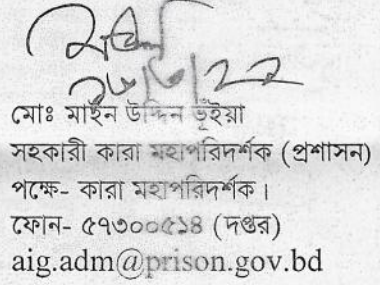 মোঃ মাইন উদ্দিন ভূঁইয়া
সহকারী কারা মহাপরিদর্শক (প্রশাসন)
পক্ষে- কারা মহাপরিদর্শক।
ফোন- ৫৭৩০০৫১৪ (দপ্তর)
aig.adm@prison.gov.bd